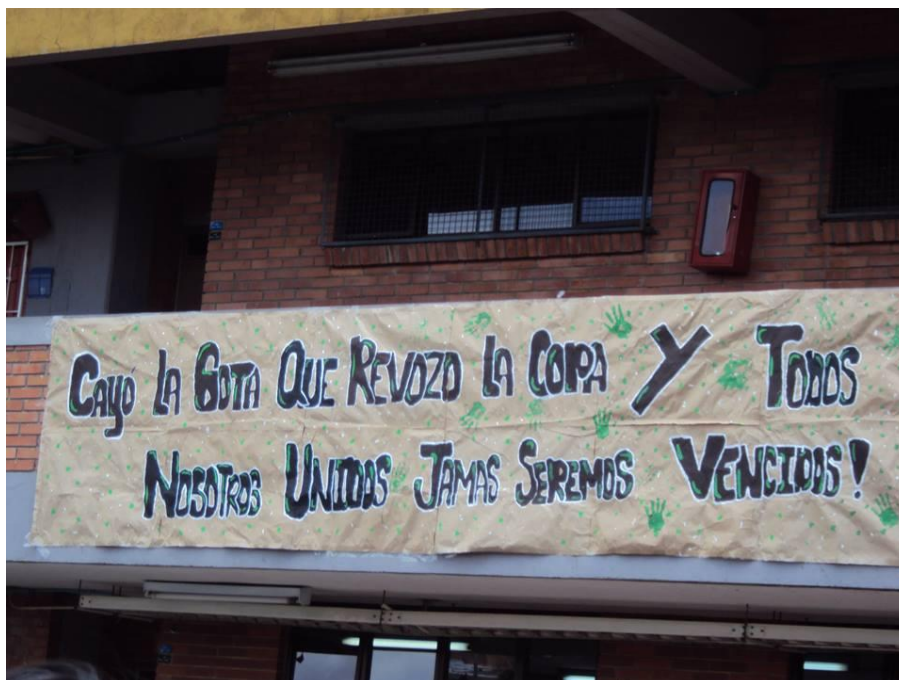 Cayó La Gota Que Revozo La Copa Y Todos
Nosotros Unidos Jamas Seremos Vencidos!